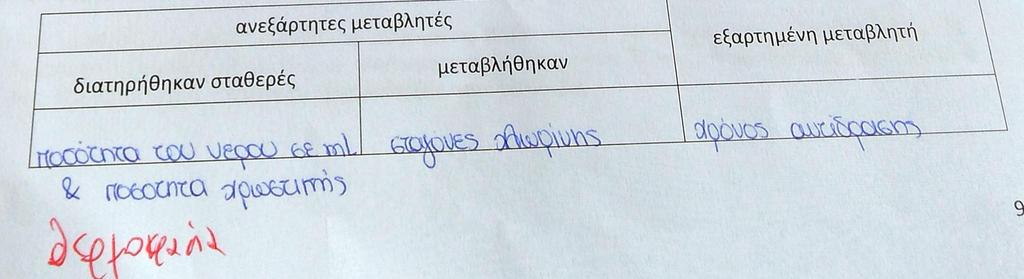 ανεξάρτητες μεταβλητές
εξαρτημένη μεταβλητή
διατηρήθηκαν σταθερές
μεταβλήθηκαν
ποσότητα του νερου σε ml
σταγόνες χλωρίνης
χρόνος αντίδρασης
& ποσοτητα χρωστικής
9